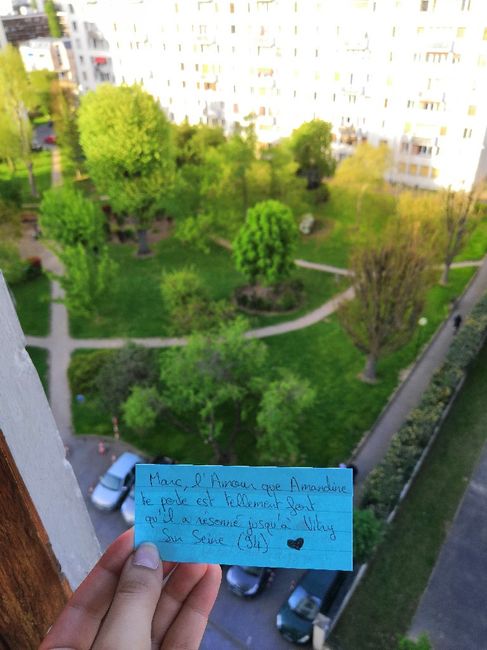 Marc, l'Amour que Amandine
te porte est tellement fort
qu'il a resonné jusqu'à Vitry
Sur Seine (94) ♥